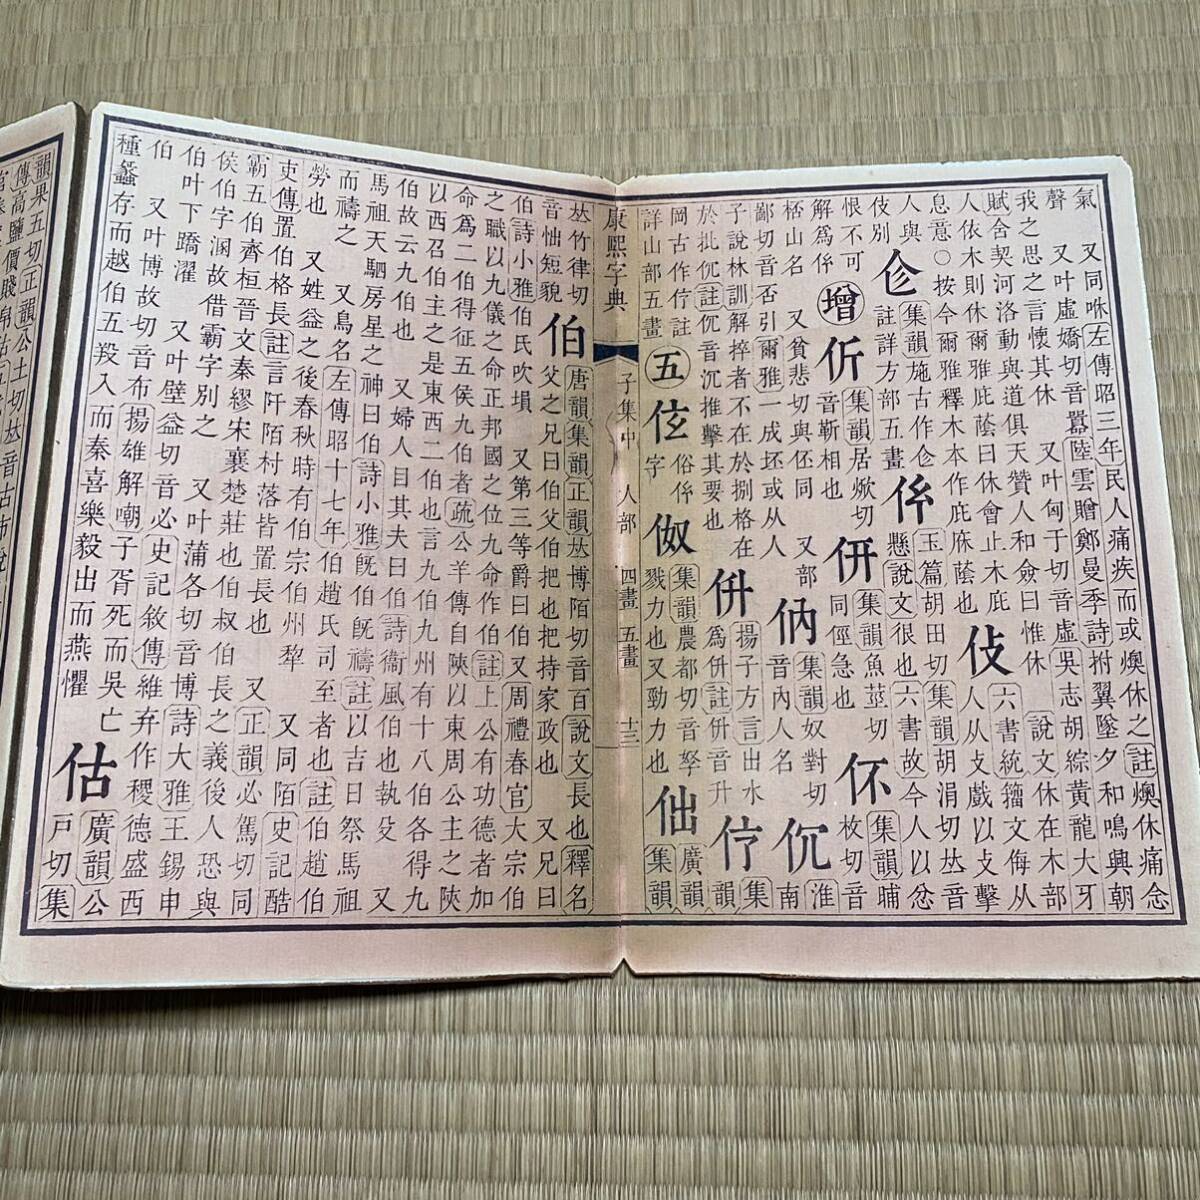 氣 又同咻左傳昭三年民人痛疾而或燠休之註燠休痛念
聲 又叶虛嬌切音囂陸雲贈鄭曼季詩拊翼墜夕和鳴興朝
我之思之言懷其休 又叶匈于切音虛吳志胡綜黃龍大牙
賦舍契河洛動與道俱天贊人和僉曰惟休 說文休在木部
人依木則休爾雅庇蔭曰休會止木庇 六書統籀文侮从
息意○按今爾雅釋木木作庇庥蔭也 㐸 人从攴戲以攴擊
人與 㐱 集韻旊古作㐱 懸說文很也六書故今人以忿
伎別 註詳方部五畫 㐸 玉篇胡田切集韻胡涓切𠀤音
恨不可 增 伒 集韻居焮切 音靳相也 㐩 同俓急也 集韻魚莖切 伓 集韻哺枚切音
解爲㐸
桮山名 又貧悲切與伾同 又部 㐻 音內人名 集韻奴對切 淮南
鄙切音否引爾雅一成坯或从人
子說林訓解捽者不在於捌格在 併 揚子方言出水 爲併註併音升 伔
於批伔註伔音沉推擊其要也 集韻
岡古作㑏註 五 伭 俗㐸字 㐐 集韻農都切音孥 戮力也又勁力也 㑁 廣韻集韻
詳山部五畫
康熙字典 子集中 人部 四畫 五畫 十三
𠀤竹律切 音怞短貌 伯 唐韻集韻正韻𠀤博陌切音百說文長也釋名
父之兄曰伯父伯把也把持家政也 又兄曰
伯詩小雅伯氏吹塤 又第三等爵曰伯又周禮春官大宗伯
之職以九儀之命正邦國之位九命作伯註上公有功德者加
命爲二伯得征五侯九伯者疏公羊傳自陝以東周公主之陝
以西召伯主之是東西二伯也言九伯九州有十八伯各得九
伯故云九伯也 又婦人目其夫曰伯詩衞風伯也執殳 又
馬祖天駟房星之神曰伯詩小雅旣伯旣禱註以吉日祭馬祖
而禱之 又鳥名左傳昭十七年伯趙氏司至者也註伯趙伯
勞也 又姓益之後春秋時有伯宗伯州犂 又同陌史記酷
吏傳置伯格長註言阡陌村落皆置長也 又正韻必駕切同
霸五伯齊桓晉文秦繆宋襄楚莊也伯叔伯長之義後人恐與
侯伯字溷故借霸字別之 又叶蒲各切音博詩大雅王錫申
伯叶下蹻濯 又叶壁益切音必史記敘傳維弃作稷德盛西
伯 又叶博故切音布揚雄解嘲子胥死而吳亡
種蠡存而越伯五羖入而秦喜樂毅出而燕懼 估 廣韻公戸切集
韻果五切正韻公土切𠀤音古